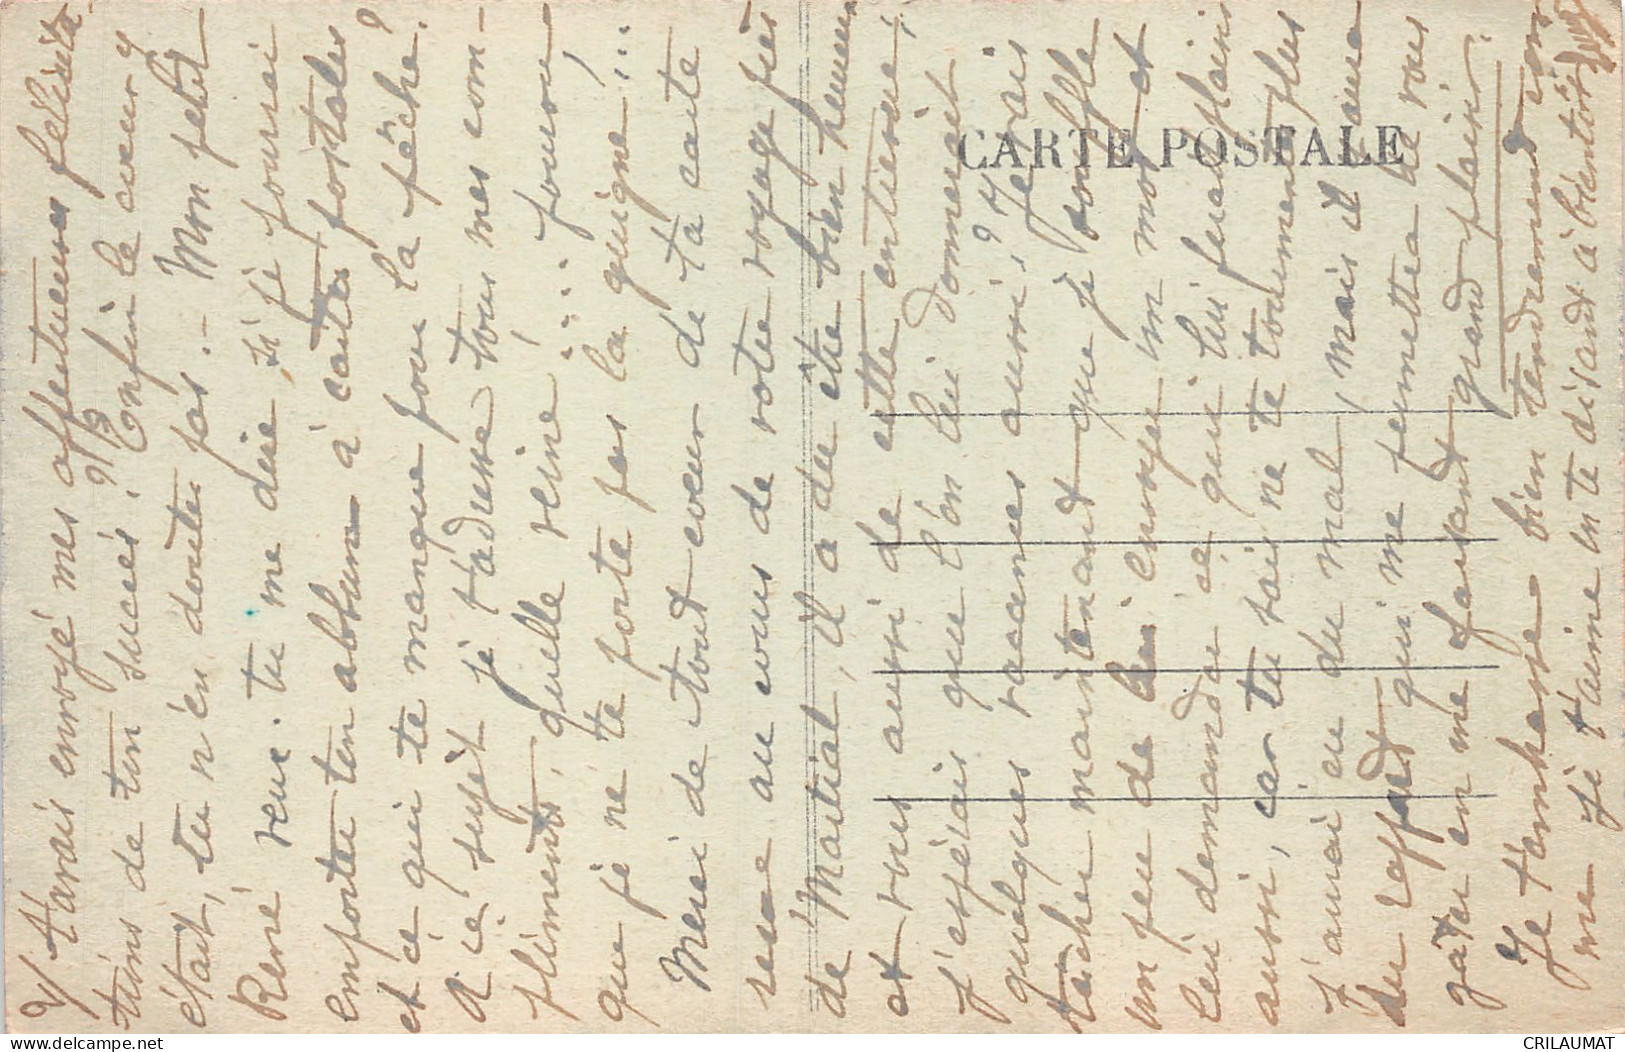 J' t'avais envoyé mes affectueuses félicita-
tions de ton succès ! Enfin le cœur y
était, tu n'en doutes pas. - Mon petit
René veux-tu me dire, si je fournirai
emporter ton album à cartes postales
et ce qui te manque pour la fêche ?
A ce sujet je t'adresse tous mes com-
pliments, quelle veine ! .... pourvu,
que je ne te porte pas la guigne !...
Merci de tout cœur de ta carte
reçue au vous de votre voyage près
de Martial, il a du être bien heureux
et vous aussi de cette entrevue,
j'espérais que l'on lui donnerait
quelques vacances aussi, je vais
tâcher maintenant que je souffle
un peu de lui envoyer un mot et
lui demander ce qui lui fera plaisir
aussi, car tu sais ne te tourmente plus
j'aurai eu du mal, mais il y aura
du Casparet qui me permettra de vous
gâter en me faisant grand plaisir.
Je t'embrasse bien tendrement com-
me je t'aime en te disant à bientôt
CARTE POSTALE
CRILAUMAT